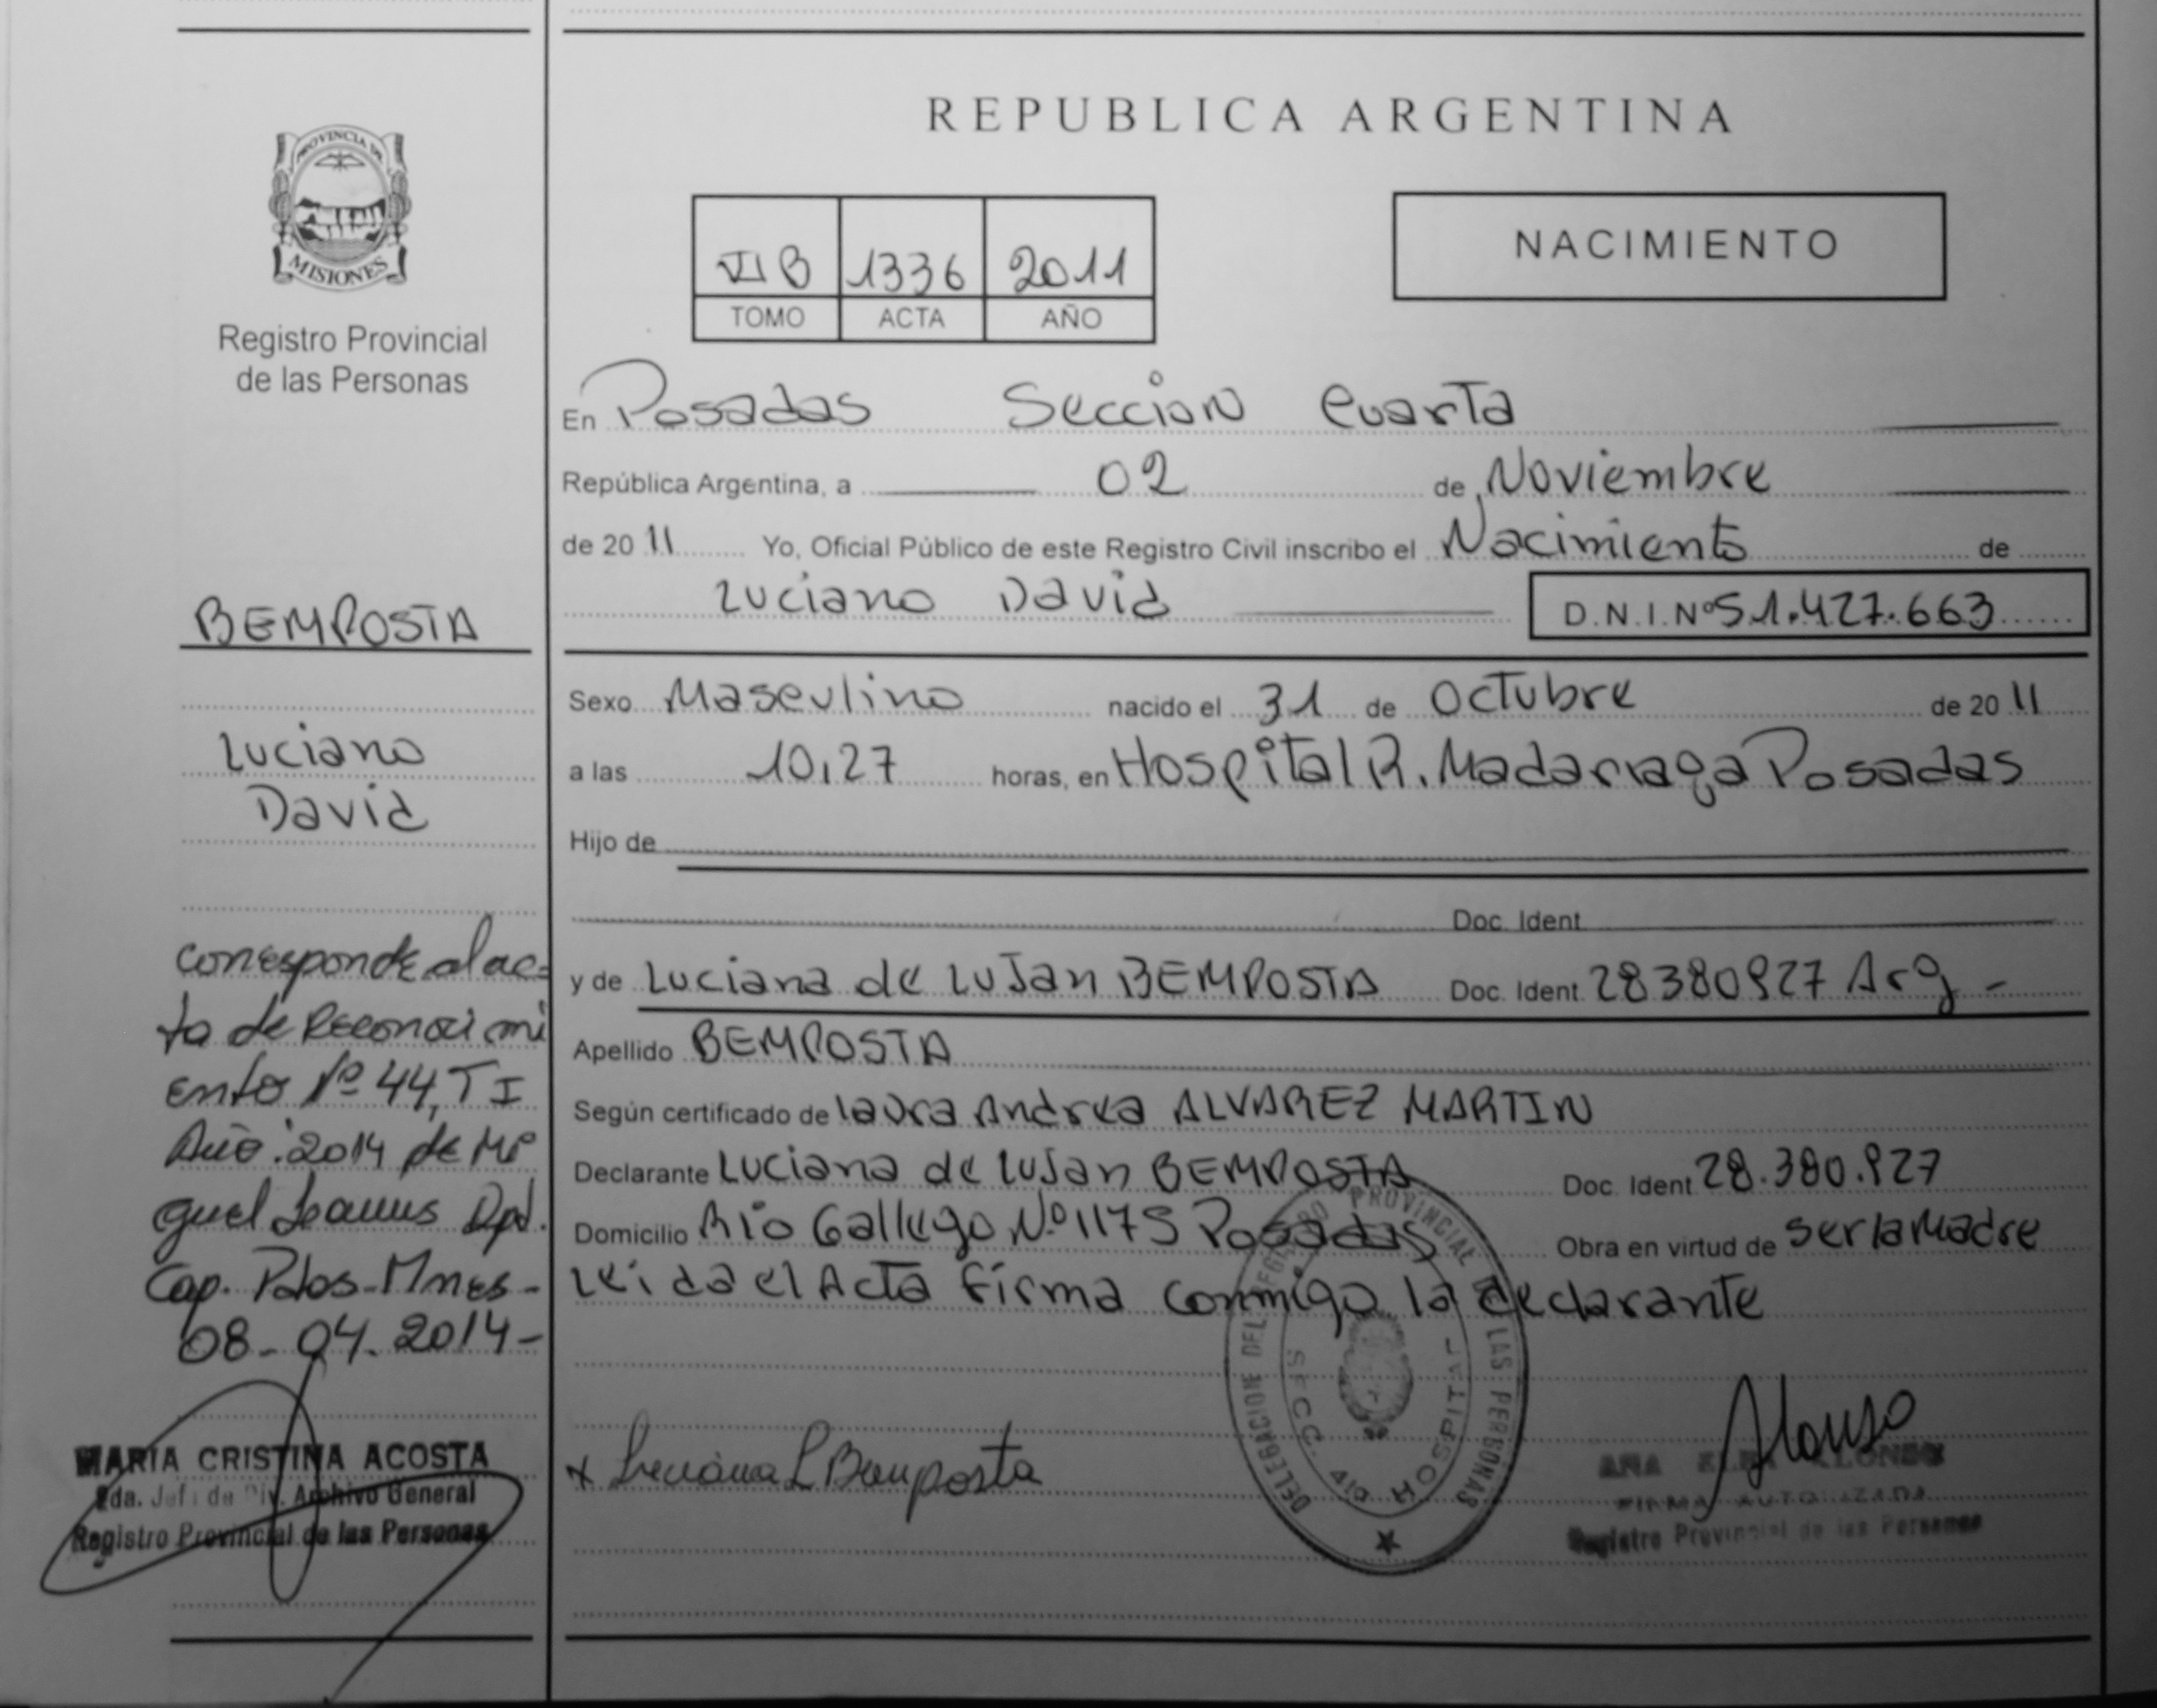 PROVINCIA DE
MISIONES
Registro Provincial
de las Personas
BEMPOSTA
Luciano
David
corresponde al ac-
ta de Reconocimi
ento Nº 44, T I
Año: 2014 de Mi
guel
Dpt.
Cap. Pdas-Mnes-
08-04.2014-
MARIA CRISTINA ACOSTA
2da. Jefa de Div. Archivo General
Registro Provincial de las Personas
REPUBLICA ARGENTINA
VI B 1336 2011
TOMO ACTA AÑO
NACIMIENTO
En Posadas Sección Cuarta
República Argentina, a 02 de Noviembre
de 2011 Yo, Oficial Público de este Registro Civil inscribo el Nacimiento de
Luciano David D.N.I.Nº 51.427.663
Sexo Masculino nacido el 31 de Octubre de 2011
a las 10,27 horas, en Hospital R. Madariaga Posadas
Hijo de
Doc. Ident
y de Luciana de Lujan BEMPOSTA Doc. Ident. 28380927 Arg -
Apellido BEMPOSTA
Según certificado de Laura Andrea ALVAREZ MARTIN
Declarante Luciana de Lujan BEMPOSTA Doc. Ident 28.380.927
Domicilio Rio Gallego Nº 1175 Posadas Obra en virtud de ser la Madre
Leida el Acta firma conmigo la declarante
x Luciana L Bemposta
DELEGACION DEL REGISTRO PROVINCIAL DE LAS PERSONAS
SECC. 4ta HOSPITAL
Alonso
ANA ELBA ALONSO
FIRMA AUTORIZADA
Registro Provincial de las Personas